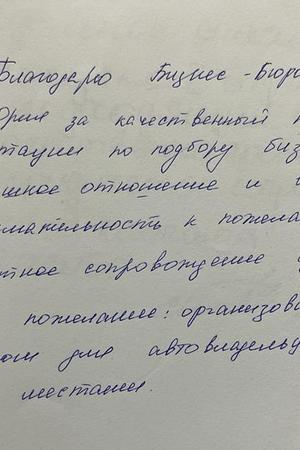 Благодарю Бизнес-Бюро
за качественный
по подбору биз
отношение и
мательность к пожела
тное сопровождение
пожелание: организова
для автовладельц
местами.